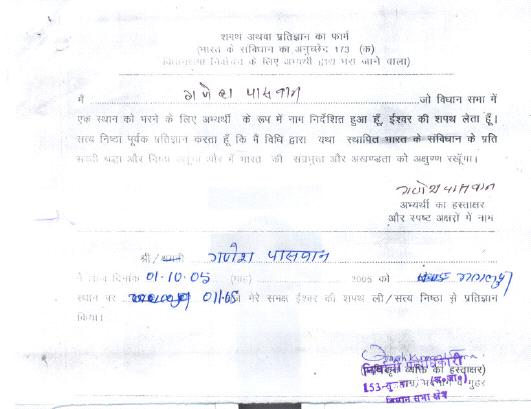 शपथ अथवा प्रतिज्ञान का फार्म
(भारत के संविधान का अनुच्छेद 173 (क)
विधानसभा निर्वाचन के लिए अभ्यर्थी द्वारा भरा जाने वाला)
मैं गणेश पासवान जो विधान सभा में
एक स्थान को भरने के लिए अभ्यर्थी के रूप में नाम निर्देशित हुआ हूँ, ईश्वर की शपथ लेता हूँ।
सत्य निष्ठा पूर्वक प्रतिज्ञान करता हूँ कि मैं विधि द्वारा यथा स्थापित भारत के संविधान के प्रति
सच्ची श्रद्धा और निष्ठा रखूंगा और मैं भारत की संप्रभुता और अखण्डता को अक्षुण्ण रखूँगा।
गणेश पासवान
अभ्यर्थी का हस्ताक्षर
और स्पष्ट अक्षरों में नाम
श्री/श्रीमती गणेश पासवान
ने आज दिनांक 01-10-05 2005 को
स्थान पर मेरे समक्ष ईश्वर की शपथ ली/सत्य निष्ठा से प्रतिज्ञान
किया।
निर्वाची पदाधिकारी
व्यक्ति का हस्ताक्षर)
153- मुहर
विधान सभा क्षेत्र